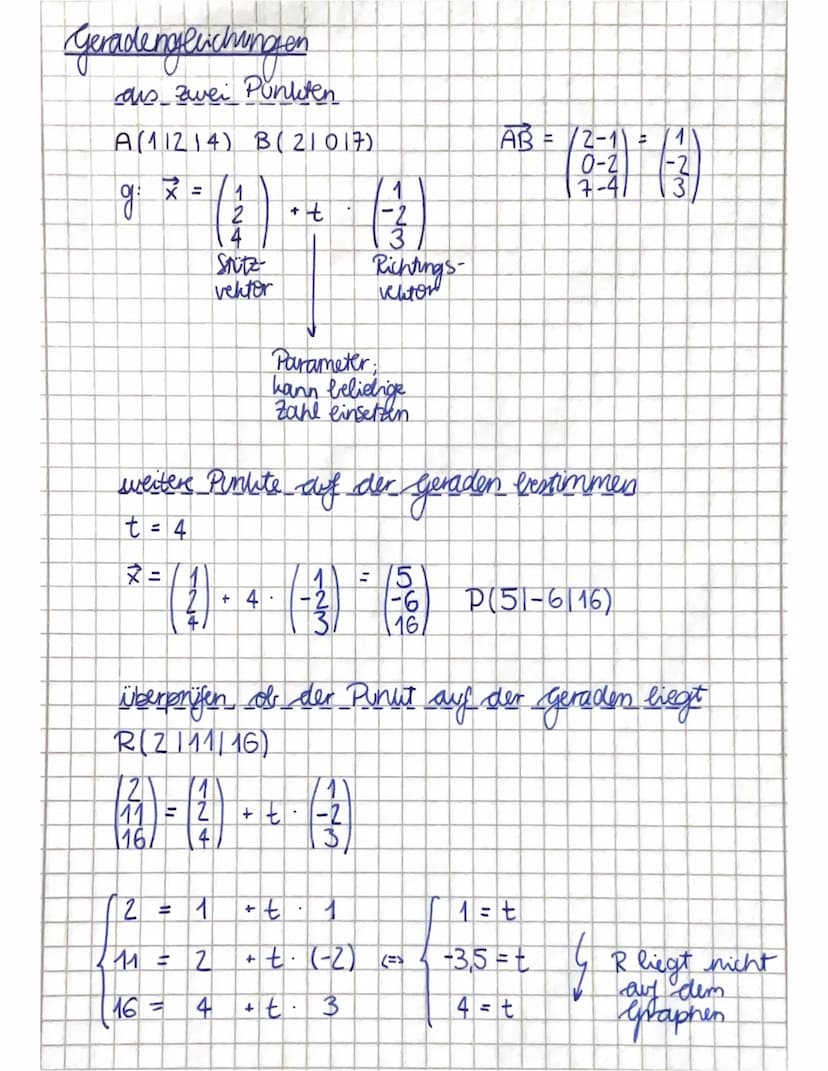 Geradengleichungen
aus zwei Punkten
A(1|2|4) B(2|0|7)
AB = (2-1 0-2 7-4) = (1 -2 3)
g: x = (1 2 4) + t · (1 -2 3)
Stütz-
vektor
Richtungs-
vektor
Parameter;
kann beliebige
Zahl einsetzen
weitere Punkte auf der Geraden bestimmen
t = 4
x = (1 2 4) + 4 · (1 -2 3) = (5 -6 16) P(5|-6|16)
überprüfen, ob der Punkt auf der Geraden liegt
R(2|11|16)
(2 11 16) = (1 2 4) + t · (1 -2 3)
2 = 1 + t · 1
11 = 2 + t · (-2)
16 = 4 + t · 3
⇔
1 = t
-3,5 = t
4 = t
R liegt nicht
auf dem
Graphen